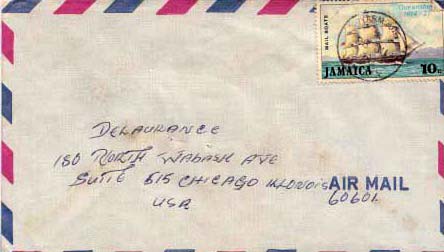 MAIL BOATS
JAMAICA 10c
DELAURANCE
180 NORTH WABASH AVE
SUITE 615 CHICAGO ILLONOIS
AIR MAIL
60601
USA